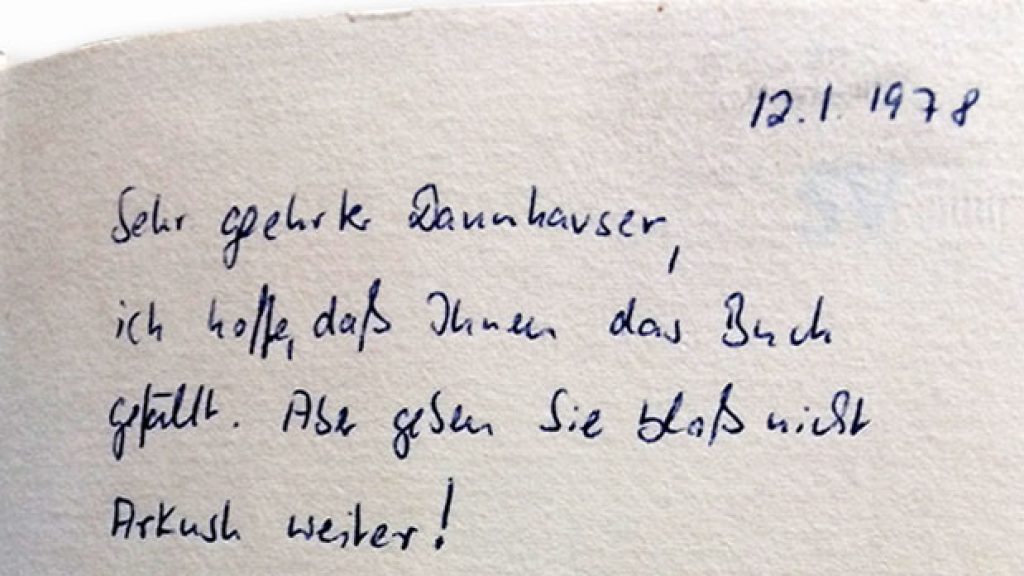 12.1.1978
Sehr geehrter Dannhauser,
ich hoffe, daß Ihnen das Buch
gefällt. Aber geben Sie bloß nicht
Arkush weiter!